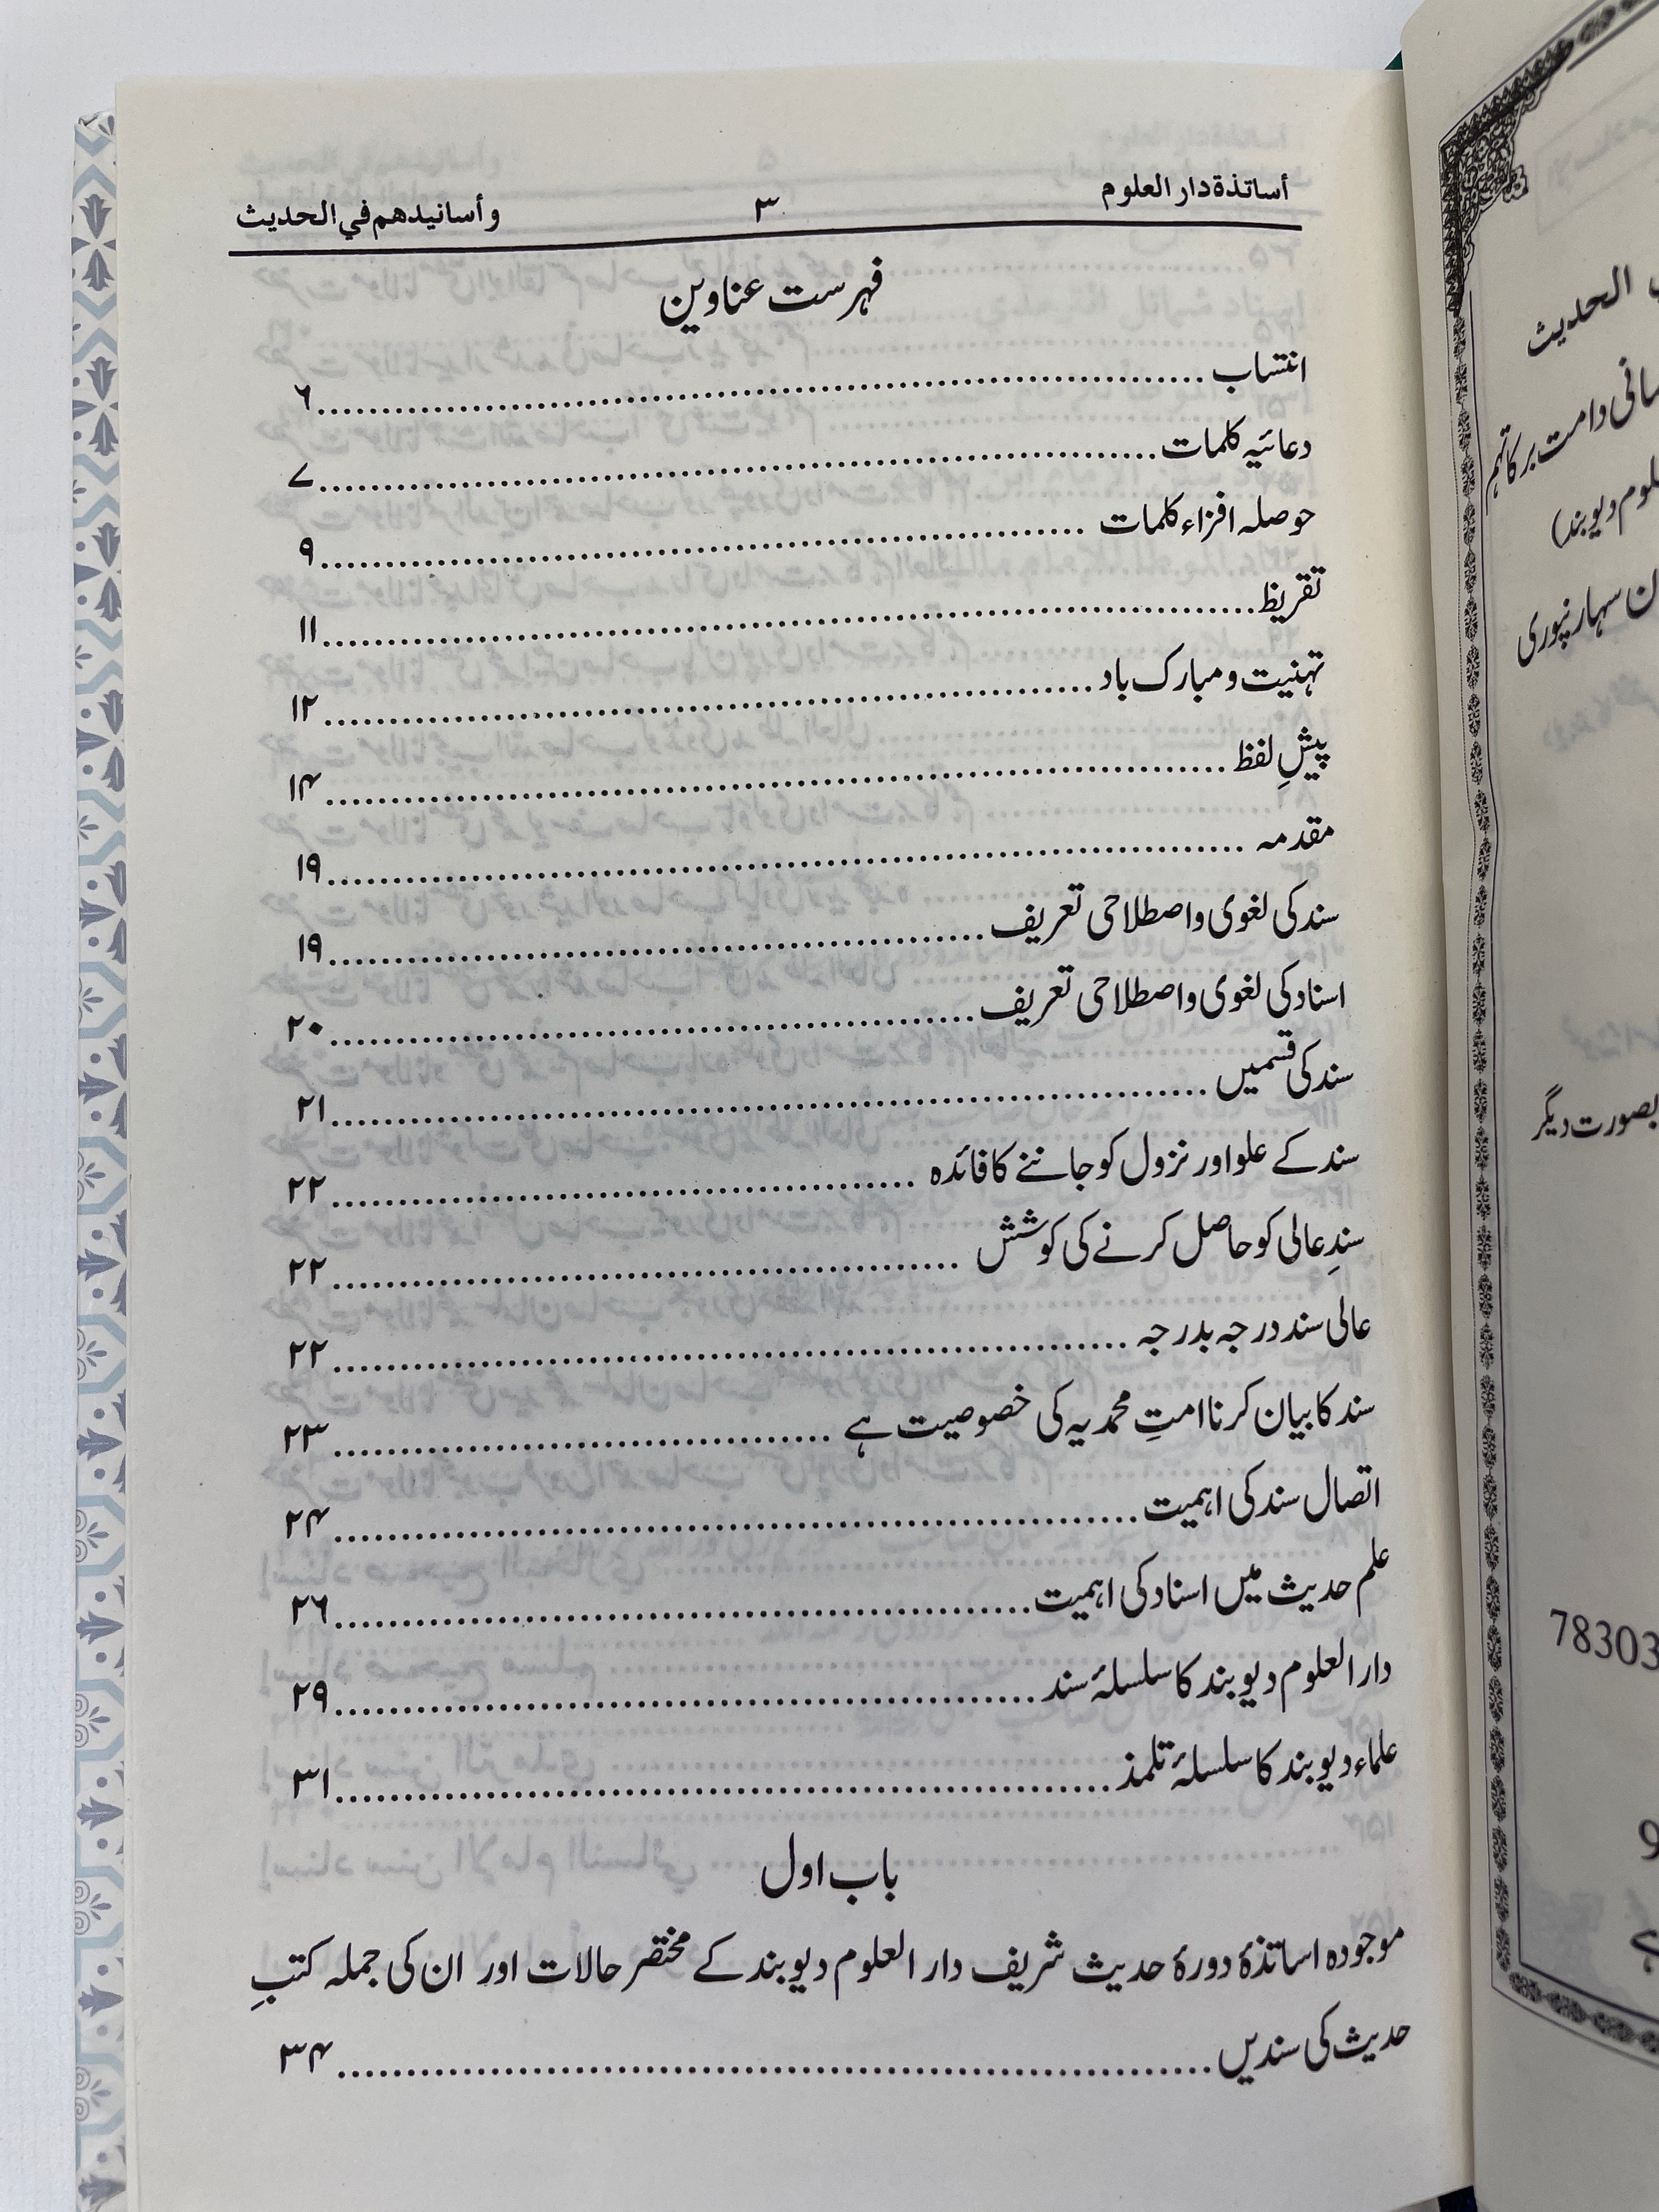 أساتذة دار العلوم ۳ وأسانيدهم في الحديث
فہرست عناوین
انتساب ۶
دعائیہ کلمات ۷
حوصلہ افزاء کلمات ۹
تقریظ ۱۱
تہنیت و مبارک باد ۱۲
پیشِ لفظ ۱۴
مقدمہ ۱۹
سند کی لغوی و اصطلاحی تعریف ۱۹
اسناد کی لغوی و اصطلاحی تعریف ۲۰
سند کی قسمیں ۲۱
سند کے علو اور نزول کو جاننے کا فائدہ ۲۲
سندِ عالی کو حاصل کرنے کی کوشش ۲۲
عالی سند درجہ بدرجہ ۲۲
سند کا بیان کرنا امتِ محمدیہ کی خصوصیت ہے ۲۳
اتصال سند کی اہمیت ۲۴
علم حدیث میں اسناد کی اہمیت ۲۶
دار العلوم دیوبند کا سلسلۂ سند ۲۹
علماء دیوبند کا سلسلۂ تلمذ ۳۱
باب اول
موجودہ اساتذۂ دورۂ حدیث شریف دار العلوم دیوبند کے مختصر حالات اور ان کی جملہ کتبِ
حدیث کی سندیں ۳۴
الحديث
دامت برکاتہم
دیوبند)
سہارنپوری
بصورت دیگر
78303
9